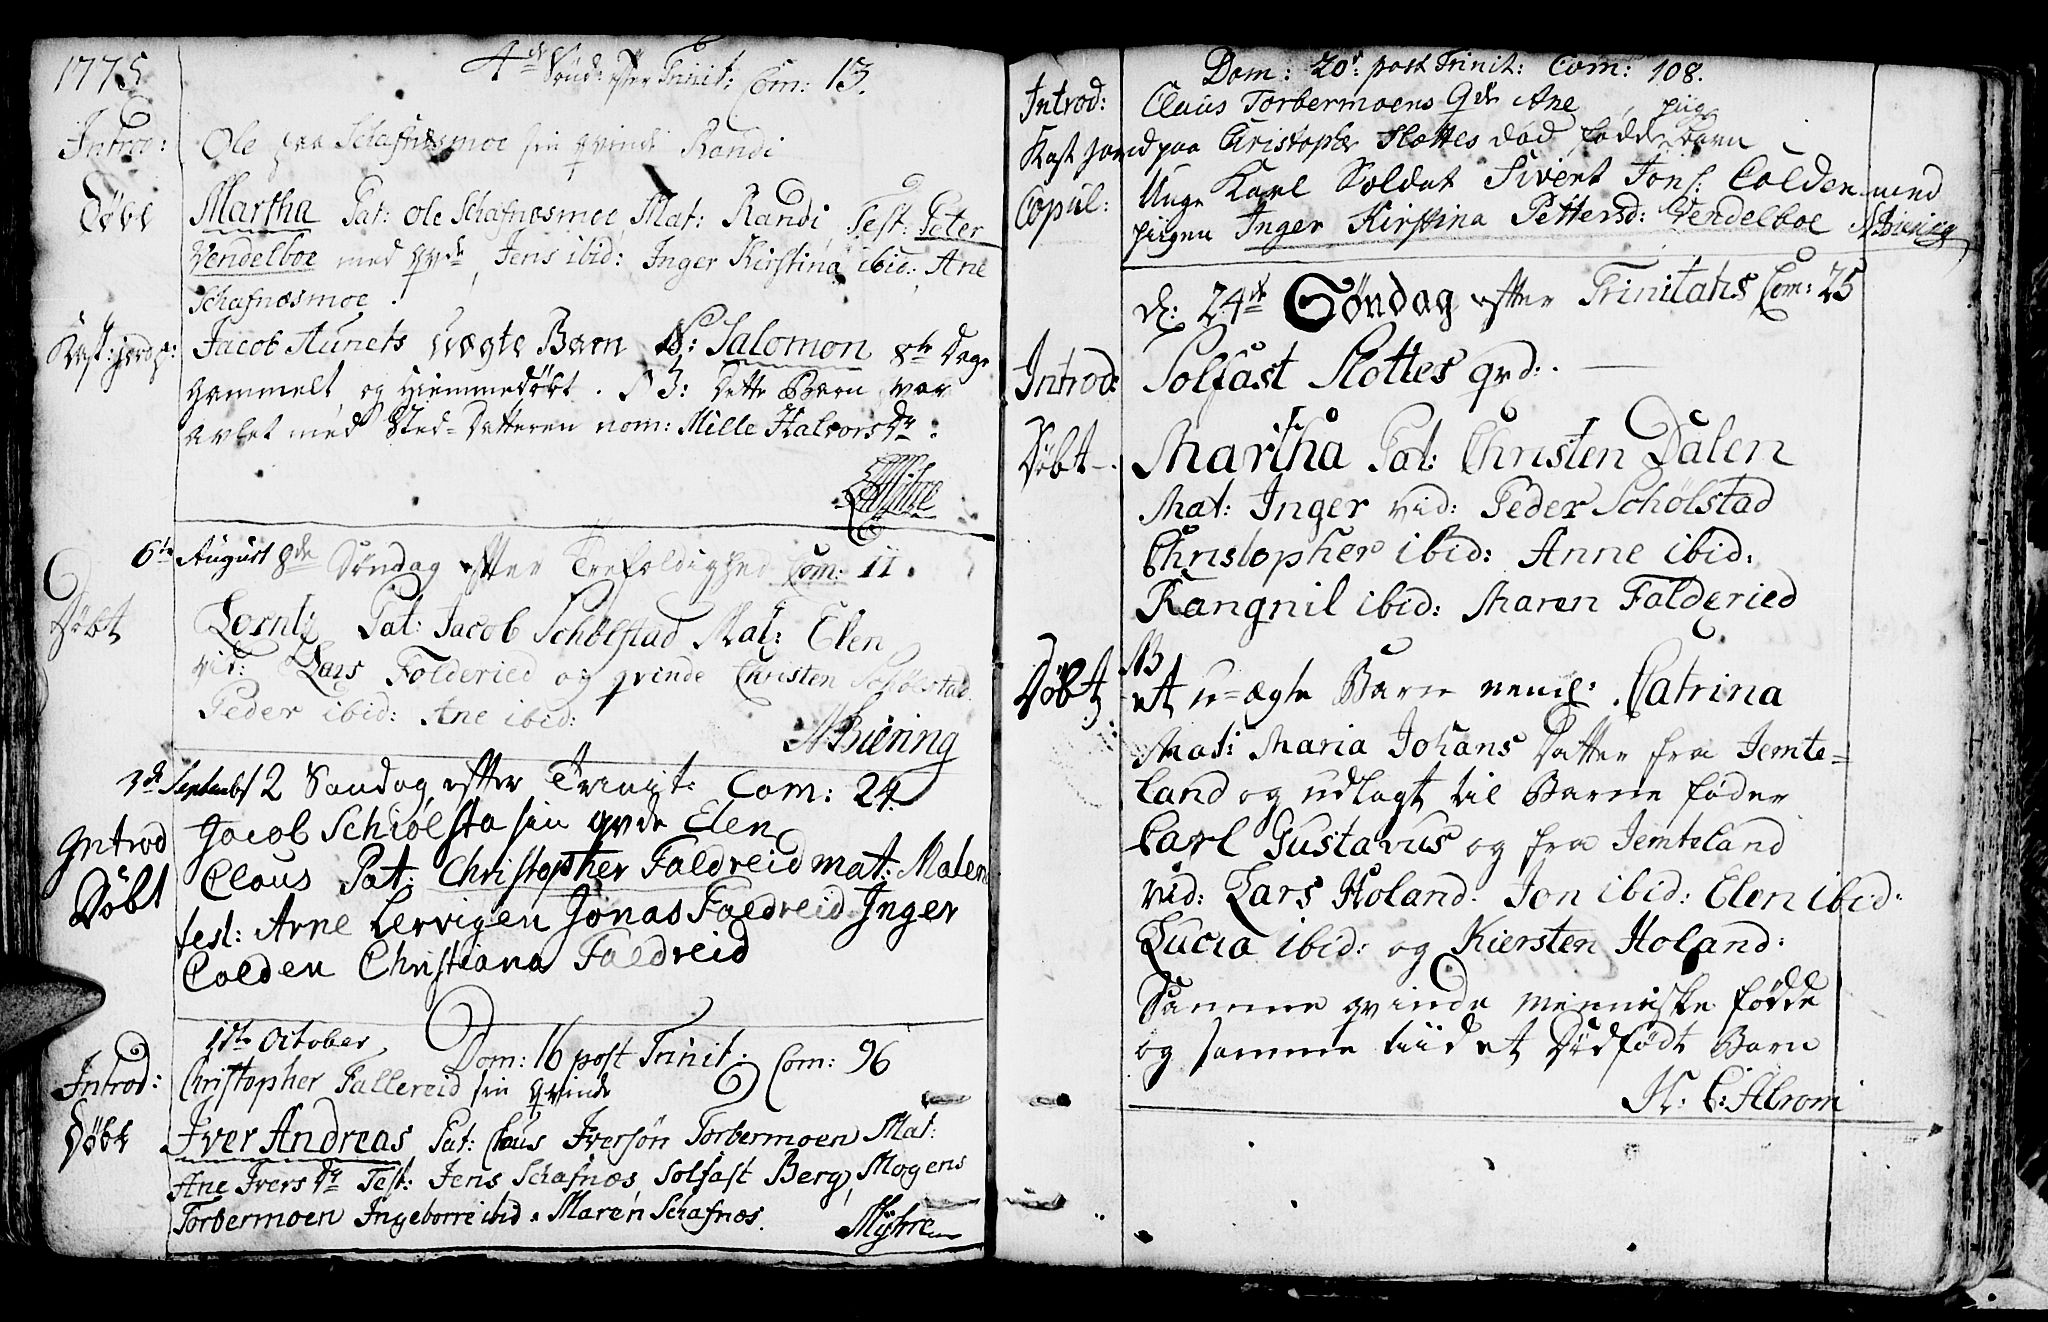 1775
4de Sønd: efter Trinit: Com: 13.
Introd: Ole paa Schafnæsmoe sin qvinde Randi
Døbt Martha Pat: Ole Schafnæsmoe, Mat: Randi, Test: Peter
Vendelboe med qvde, Jens ibid: Inger Kirstina ibid: Ane
Schafnæsmoe.
Kast: jord p: Jacob Aunets uægte Barn N: Salomon 8te Dage
gammelt og hiemmedøbt. NB: dette Barn var
avlet med Sted-Datteren nom: Mille Halvorsdr:
Myhre
6te August 8de Søndag efter Trefoldighed Com: 11.
Døbt Lorntz Pat: Jacob Schølstad Mat: Elen
vid: Lars Folderied og qvinde Christen Schølstad
Peder ibid: Ane ibid:
NBiering
3de Septembr 12 Søndag efter Trinit: Com: 24.
Introd Jacob Schiølsta sin qvde Elen
Døbt Claus Pat: Christopher Faldreid mat: Malen
test: Arne Lervigen Jonas Faldreid Inger
Colden Christiana Faldreid
1ste October Dom: 16 post Trinit: Com: 96
Introd: Christopher Fallereid sin qvinde
Døbt Iver Andreas Pat: Claus Iversøn Torbermoen Mat:
Ane Iversdr Test: Jens Schafnæs, Solfast Berg, Mogens
Torbermoen Ingeborre ibid. Maren Schafnæs.
Myhre
Dom: 20de post Trinit: Com: 108.
Introd: Claus Torbermoens Qde Ane
pige
Kast jord paa Christopher Slottes død fødde Barn
Copul: Unge Karl Soldat Sivert Jons: Colden med
pigen Inger Kirstina Pettersd: Vendelboe NBiering
d: 24de Søndag efter Trinitatis Com: 25
Introd: Solfast Slottes qvd:.
Døbt Martha Pat: Christen Dalen
Mat: Inger vid: Peder Schølstad
Christopher ibid: Anne ibid:
Rangnil ibid: Maren Falderied
NB
Døbt et u-ægte Barn neml: Catrina
Mat: Maria Johans Datter fra Jemte=
land og udlagt til Barne fader
Carl Gustavus og fra Jemteland
vid: Lars Holand. Jon ibid: Elen ibid:
Lucia ibid: og Kiersten Holand:
Samme qvinde menniske fødde
og samme tiid et Dødfødt Barn